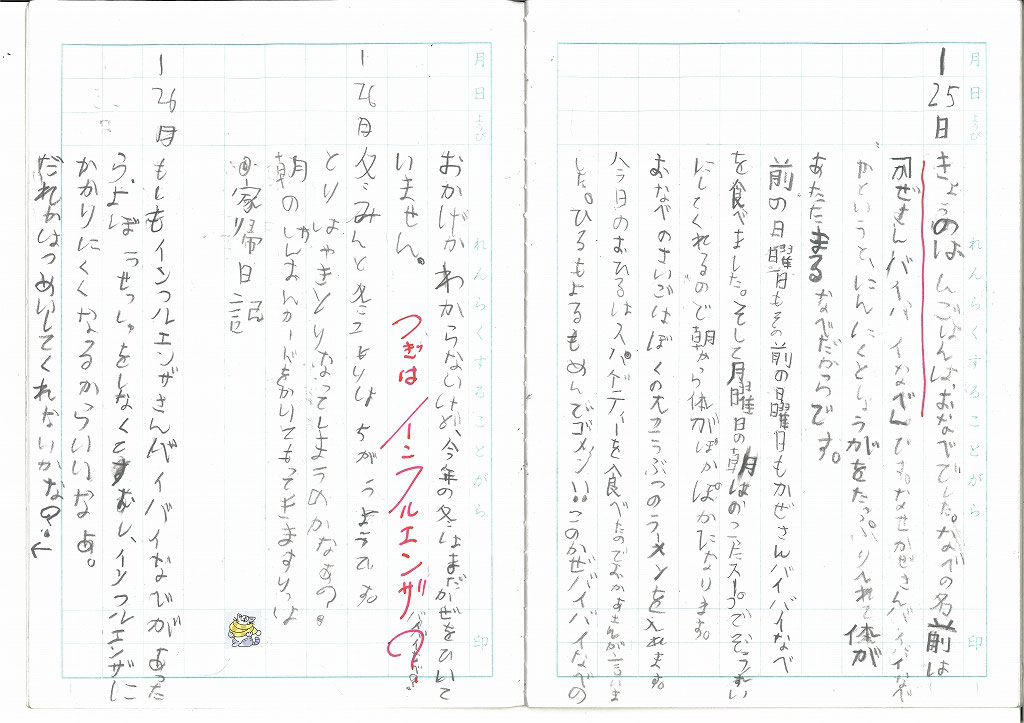 月 日 ようび れんらくすることがら 印
1 25日 きょうのばんごはんは、おなべでした。なべの名前は
「かぜさんバイバイなべ」です。なぜかぜさんバイバイなべ
かというと、にんにくとしょうがをたっぷり入れて体が
あたたまるなべだからです。
前の日曜日もその前の日曜日もかぜさんバイバイなべ
を食べました。そして月曜日の朝はのこったスープでぞうすい
にしてくれるので朝から体がぽかぽかになります。
おなべのさいごはぼくの大こうぶつのラーメンを入れます。
今日のおひるはスパゲティーを食べたのでおかあさんが言いま
した。ひるもよるもめんでゴメン!!このかぜバイバイなべの
月 日 ようび れんらくすることがら 印
おかげかわからないけど、今年の冬はまだかぜをひいて
いません。
つぎは インフルエンザ バイバイなべ?
1 26日
とりはやきとりになってしまうのかなあ?
朝の
家帰日記
1 26日 もしもインフルエンザさんバイバイなべがあった
ら、よぼうせっしゅをしなくてすむし、インフルエンザに
かかりにくくなるからいいなあ。
だれかはつめいしてくれないかな?